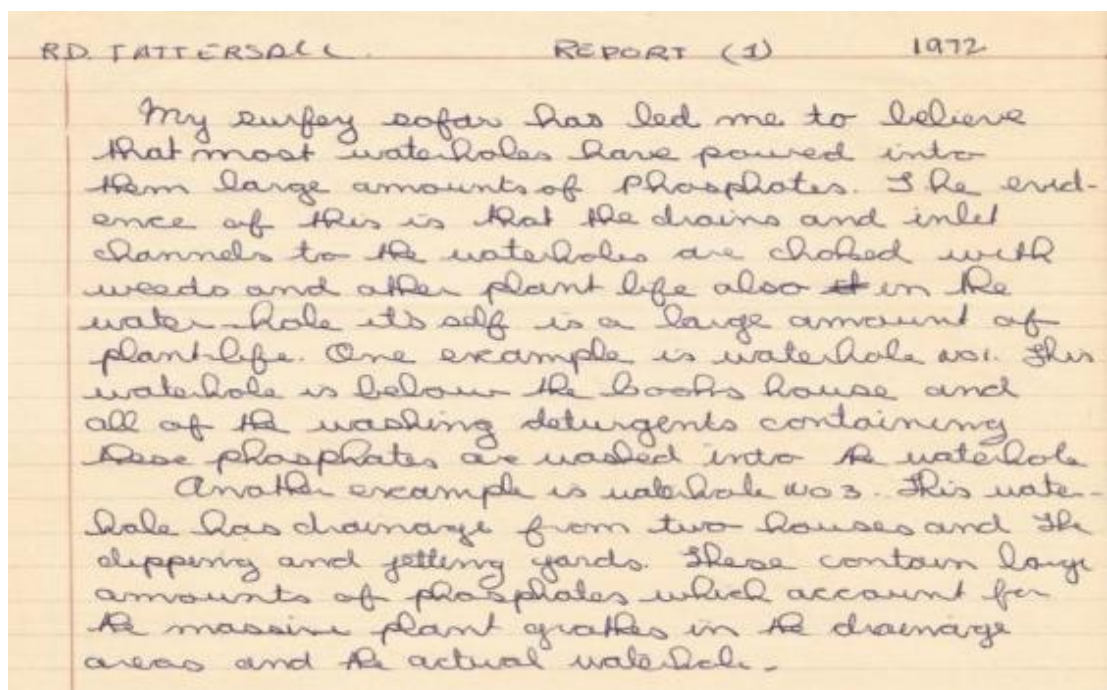 R.D. TATTERSALL. REPORT (1) 1972
My surfey sofar has led me to believe
that most waterholes have poured into
them large amounts of Phosphates. The evid-
ence of this is that the drains and inlet
channels to the waterholes are choked with
weeds and other plant life also in the
water-hole it's self is a large amount of
plantlife. One example is waterhole no1. This
waterhole is below the books house and
all of the washing deturgents containing
these phosphates are washed into the waterhole
Another example is waterhole no3. This water-
hole has drainage from two houses and the
dipping and jetting yards. These contain large
amounts of phosphates which account for
the massive plant grothes in the drainage
areas and the actual waterhole.